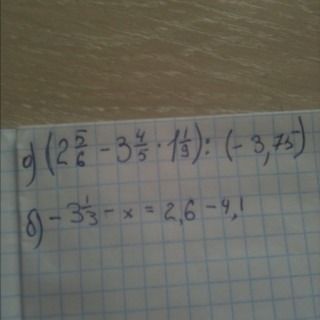 а) (2 5/6 - 3 4/5 · 1 1/9) : (- 3,75)
б) - 3 1/3 - x = 2,6 - 4,1